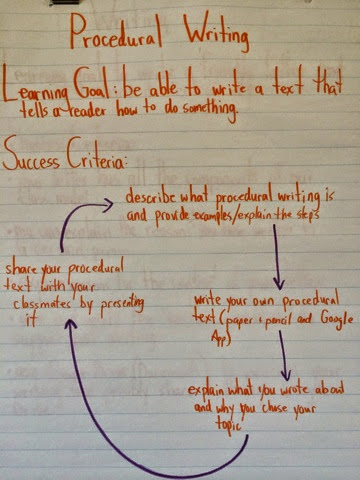 Procedural Writing
Learning Goal: be able to write a text that
tells a reader how to do something.
Success Criteria:
describe what procedural writing is
and provide examples/explain the steps
write your own procedural
text (paper + pencil and Google
App)
explain what you wrote about
and why you chose your
topic
share your procedural
text with your
classmates by presenting
it